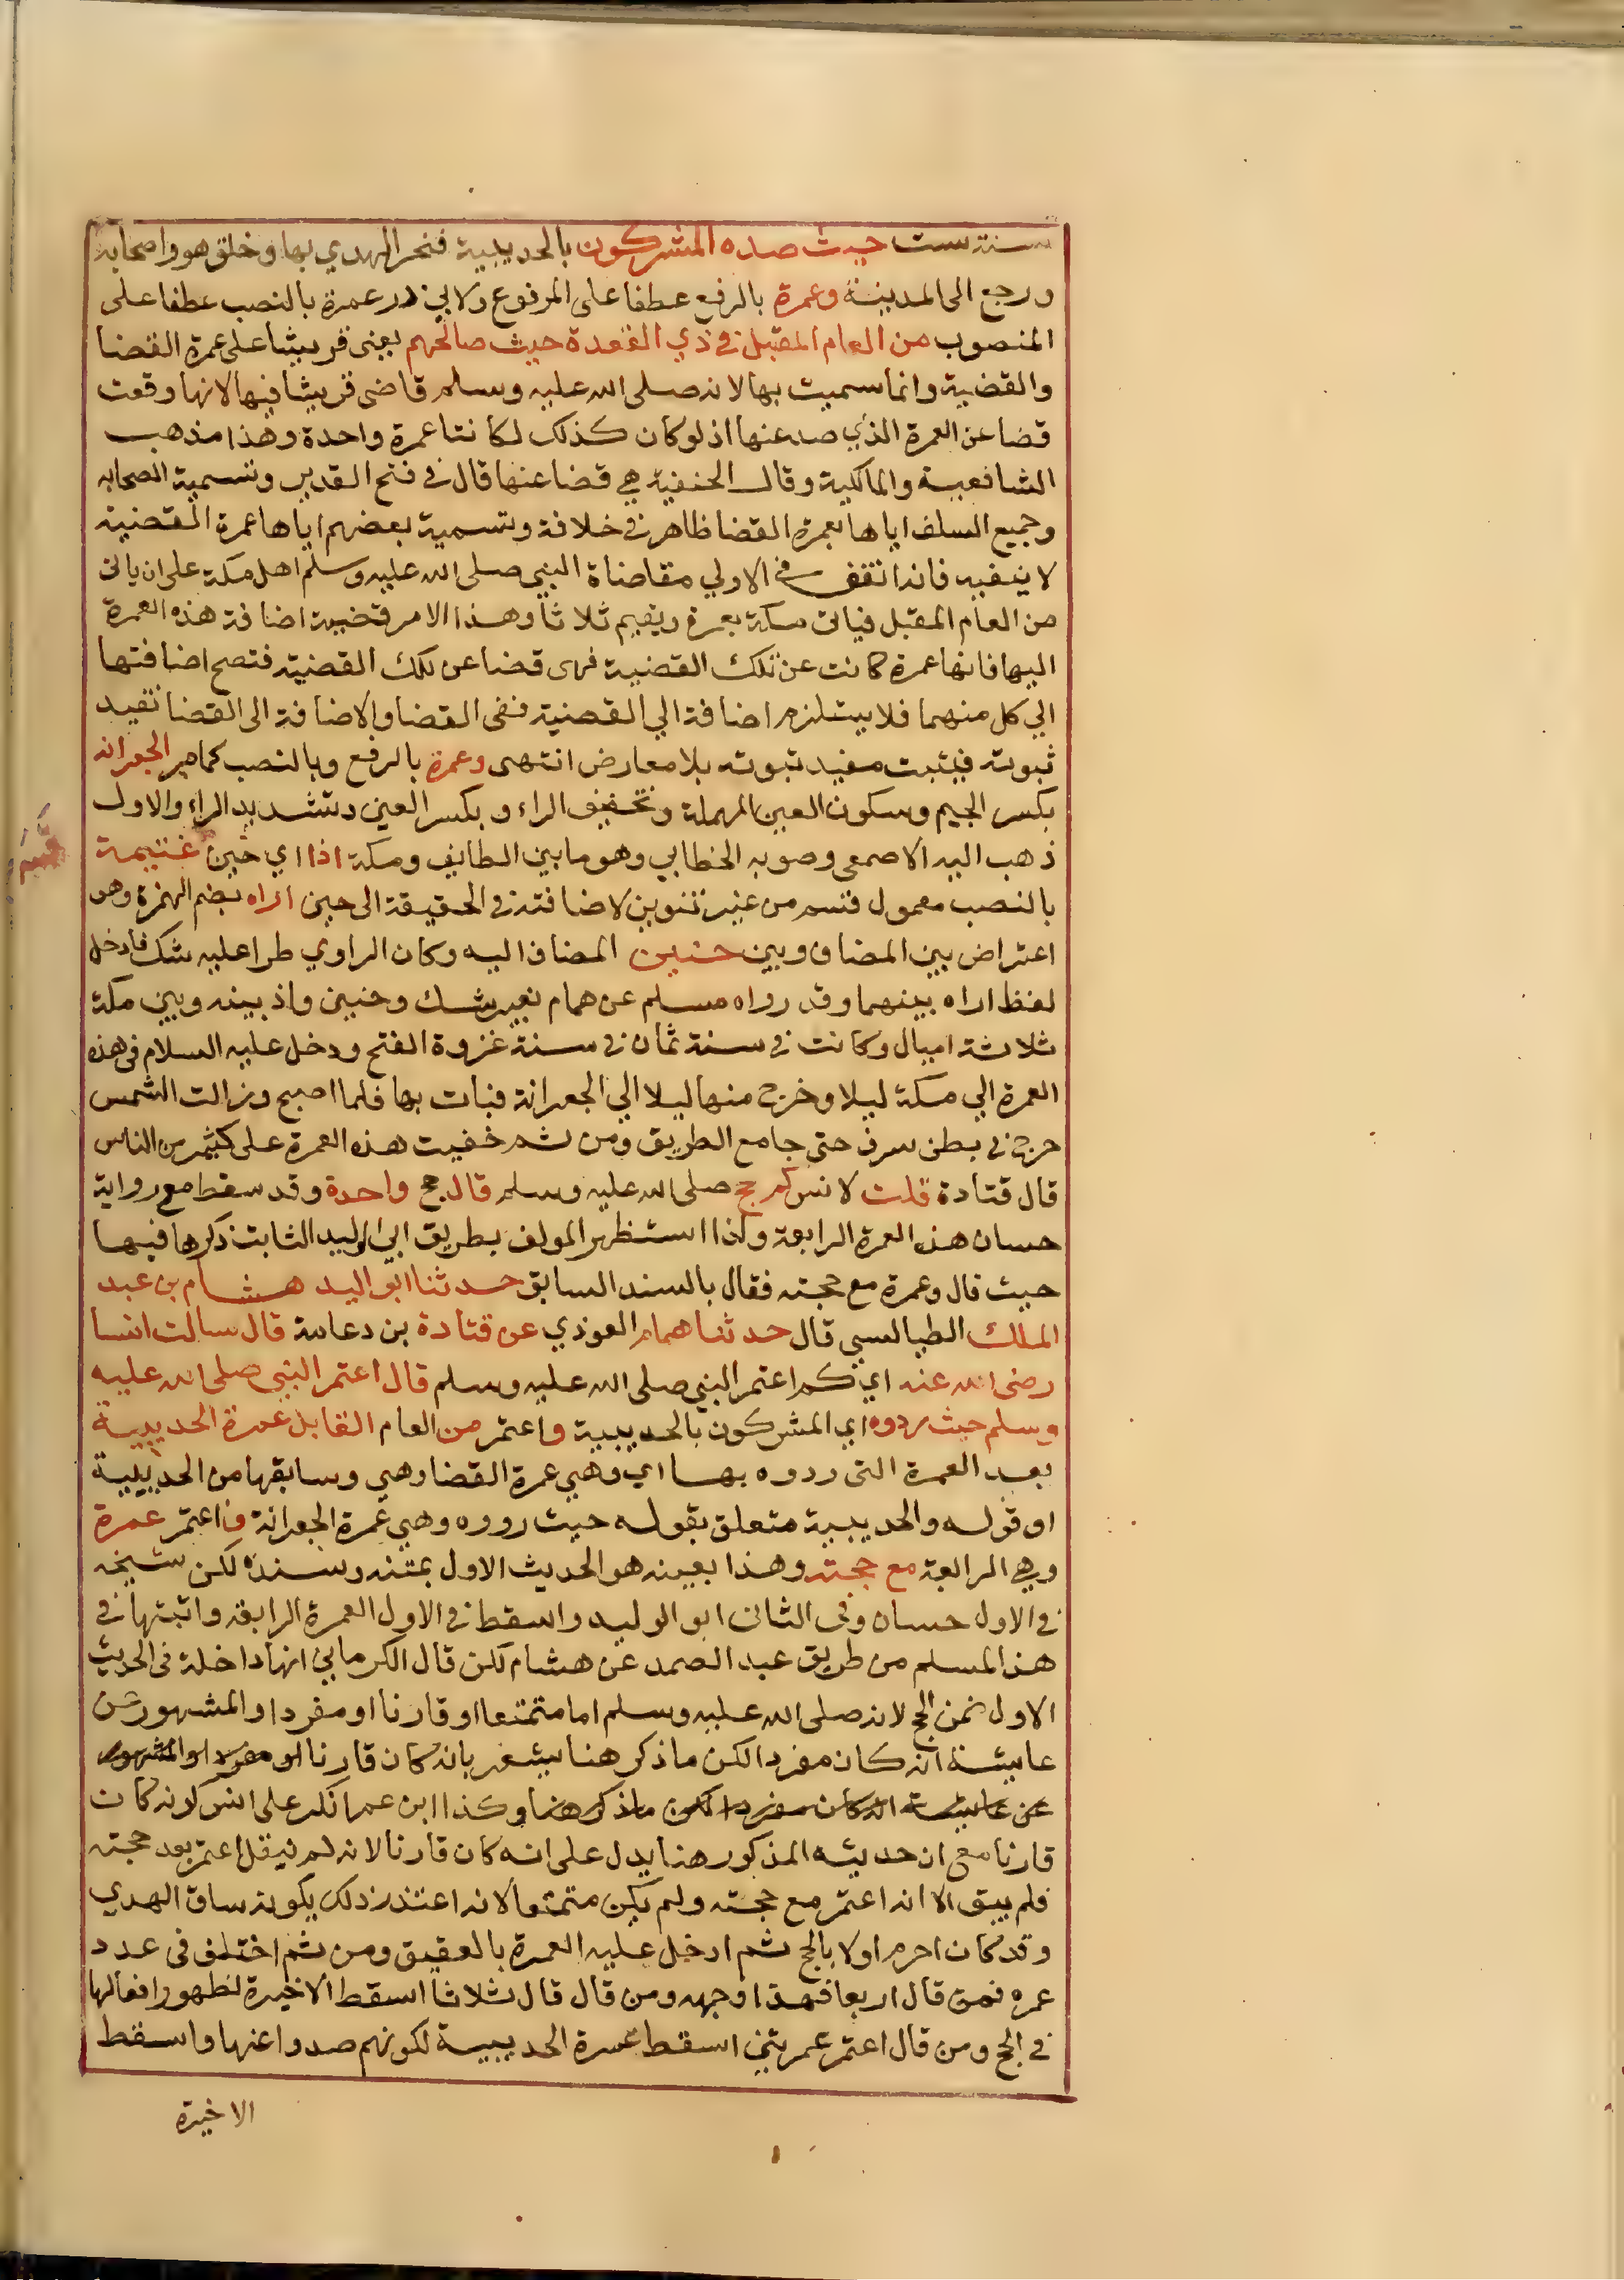 سنة ست حيث صده المشركون بالحديبية فنحر الهدي بها وحلق هو واصحابه
ورجع الى المدينة وعمرة بالرفع عطفا على المرفوع ولابي ذر عمرة بالنصب عطفا على
المنصوب من العام المقبل في ذي القعدة حيث صالحهم يعني قريشا على عمرة القضا
والقضية وانما سميت بها لانه صلى الله عليه وسلم قاضى قريشا فيها لا انها وقعت
قضا عن العمرة الذي صد عنها اذ لو كان كذلك لكانتا عمرة واحدة وهذا مذهب
الشافعية والمالكية وقال الحنفية هي قضا عنها قال في فتح القدير وتسمية الصحابه
وجميع السلف اياها بعمرة القضا ظاهر في خلافة وتسمية بعضهم اياها عمرة القضية
لا ينفيه فانه اتفق في الاولي مقاضاة النبي صلى الله عليه وسلم اهل مكة على ان ياتى
من العام المقبل فياتى مكة بعمرة ويقيم ثلاثا وهذا الامر قضية اضافة هذه العمرة
اليها فانها عمرة كانت عن تلك القضية فهى قضا عن تلك القضية فتصح اضافتها
الي كل منهما فلا يستلزم اضافة الي القضية نفى القضا والاضافة الى القضا تفيد
ثبوته فيثبت مفيد ثبوته بلا معارض انتهى وعمرة بالرفع وبالنصب كما مر الجعرانه
بكسر الجيم وسكون العين المهملة وتخفيف الراء وبكسر العين وتشديد الراء والاول
ذهب اليه الاصمعى وصوبه الخطابي وهو ما بين الطايف ومكة اذا اي حين غنيمة
بالنصب معمول قسم من غير تنوين لاضافته في الحقيقة الى حين اراه بضم الهمزة وهو
اعتراض بين المضاف وبين حنين المضاف اليه وكان الراوي طرا عليه شك فادخل
لفظ اراه بينهما وقد رواه مسلم عن همام بغير شك وحنين واد بينه وبين مكة
ثلاثة اميال وكانت في سنة ثمان في سنة غزوة الفتح ودخل عليه السلام في هذه
العمرة الي مكة ليلا وخرج منها ليلا الي الجعرانة فبات بها فلما اصبح وزالت الشمس
خرج في بطن سرف حتى جامع الطريق ومن ثم خفيت هذه العمرة على كثير من الناس
قال قتادة قلت لانس كم حج صلى الله عليه وسلم قال حج واحدة وقد سقط مع رواية
حسان هذه العمرة الرابعة ولذا استظهر المولف بطريق ابي الوليد الثابت ذكرها فيها
حيث قال وعمرة مع حجته فقال بالسند السابق حدثنا ابو اليد هشام بن عبد
الملك الطيالسي قال حدثنا همام العوذي عن قتادة بن دعامة قال سالت انسا
رضى الله عنه اي كم اعتمر النبي صلى الله عليه وسلم قال اعتمر النبي صلى الله عليه
وسلم حيث ردوه اي المشركون بالحديبية واعتمر من العام القابل عمرة الحديبية
بعد العمرة التى ردوه بها اي وهي عمرة القضا وهي وسابقها من الحديبية
او قوله والحديبية متعلق بقوله حيث رووه وهي عمرة الجعرانة واعتمر عمرة
وهي الرابعة مع حجته وهذا بعينه هو الحديث الاول بمتنه وسنده لكن شيخه
في الاول حسان وفى الثانى ابو الوليد واسقط في الاول العمرة الرابعة واثبتها في
هذا المسلم من طريق عبد الصمد عن هشام لكن قال الكرماني انها داخلة في الحديث
الاول ضمن الحج لانه صلى الله عليه وسلم اما متمتعا او قارنا او مفردا والمشهور عن
عايشة انه كان مفردا لكن ما ذكر هنا يشعر بانه كان قارنا او مفردا والمشهور
عن عايشة انه كان مفردا لكن ما ذكر هنا وكذا ابن عمر انكر على انس كونه كان
قارنا مع ان حديثه المذكور هنا يدل على انه كان قارنا لانه لم ينقل اعتمر بعد حجته
فلم يبق الا انه اعتمر مع حجته ولم يكن متمتعا لانه اعتذر ذلك بكونه ساق الهدي
وقد كان احرم اولا بالحج ثم ادخل عليه العمرة بالعقيق ومن ثم اختلف في عدد
عمره فمن قال اربعا فهذا وجهه ومن قال قال ثلاثا اسقط الاخيرة لظهور افعالها
في الحج ومن قال اعتمر عمرتين اسقط عمرة الحديبية لكونهم صدوا عنها واسقط
الاخيرة
قسم